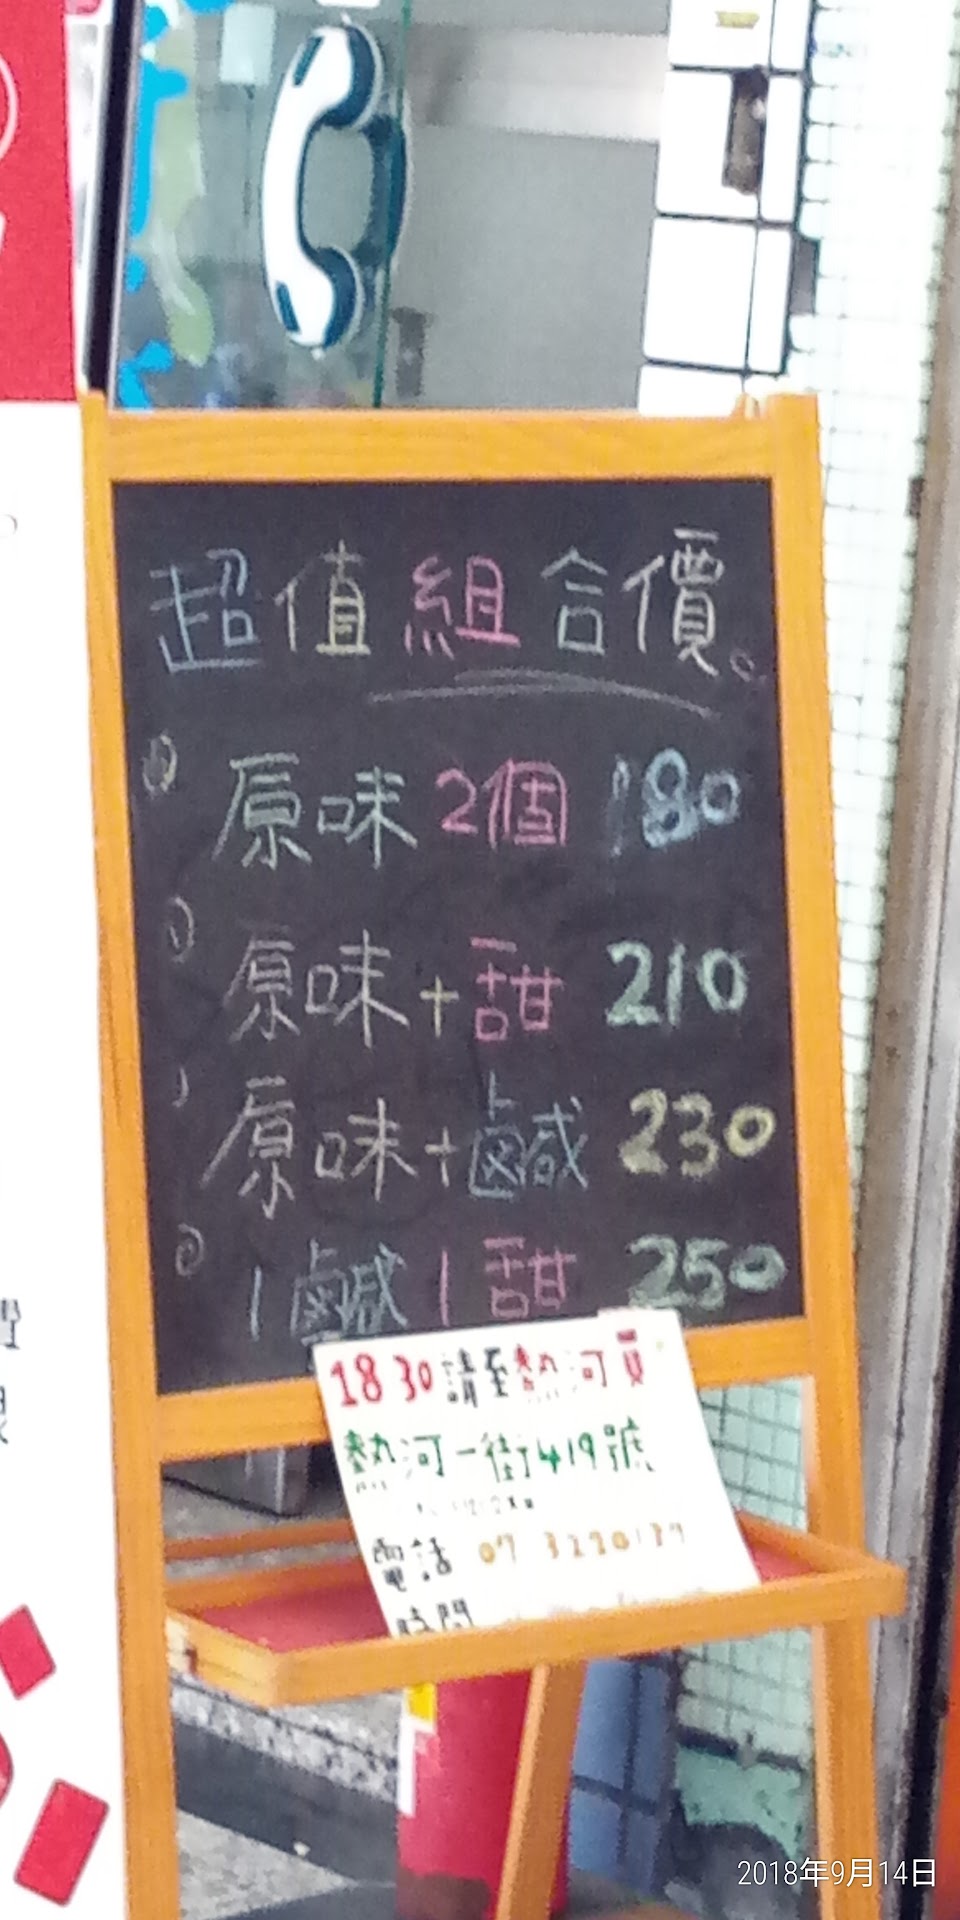 超值組合價。
原味2個 180
原味+甜 210
原味+鹹 230
1鹹1甜 250
1830請至熱河買
熱河一街419號
電話 07 3220137
時間
2018年9月14日